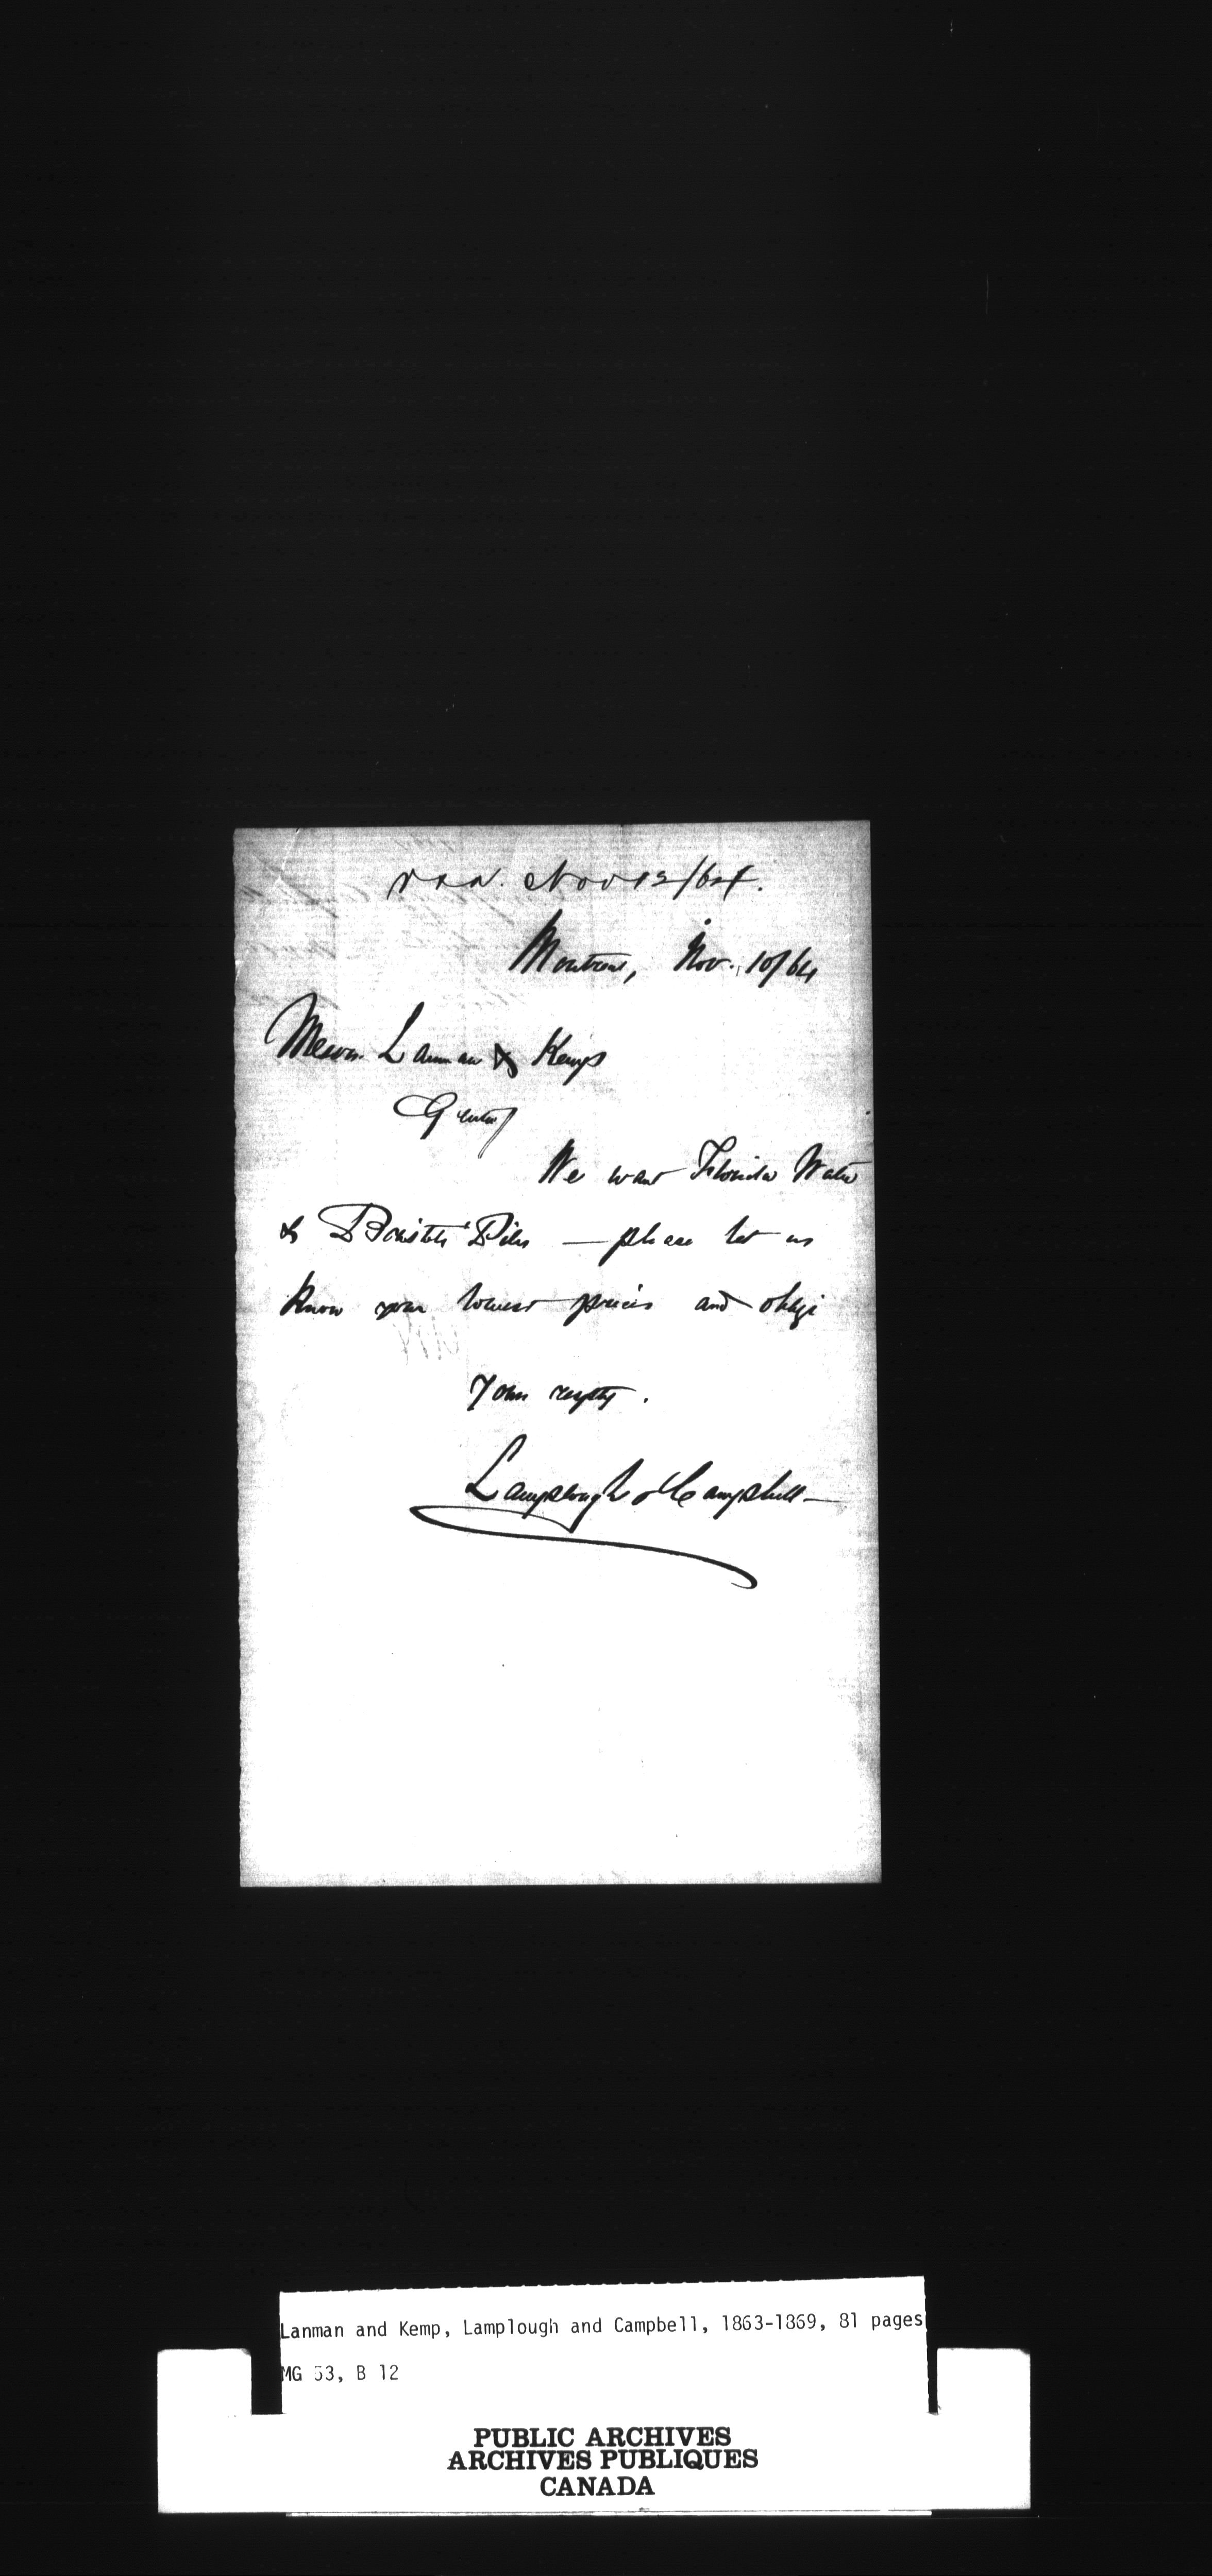 Nov 12/64.
Montreal, Nov. 10/64
Messrs. Lanman & Kemp
Gents
We want Florida Water
& Bristols Pills — please let us
know your lowest prices and oblige
Yours respty.
Lamplough & Campbell
Lanman and Kemp, Lamplough and Campbell, 1863-1869, 81 pages
MG 53, B 12
PUBLIC ARCHIVES
ARCHIVES PUBLIQUES
CANADA